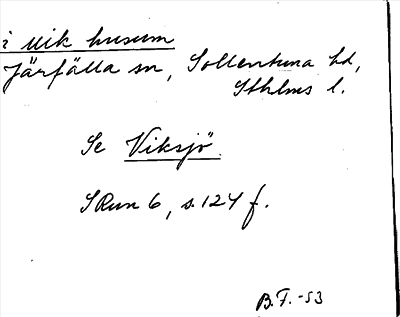 i uik husum
Järfälla sn, Sollentuna hd,
Sthlms l.
Se Viksjö.
SRun 6, s. 124 f.
B.F. -53